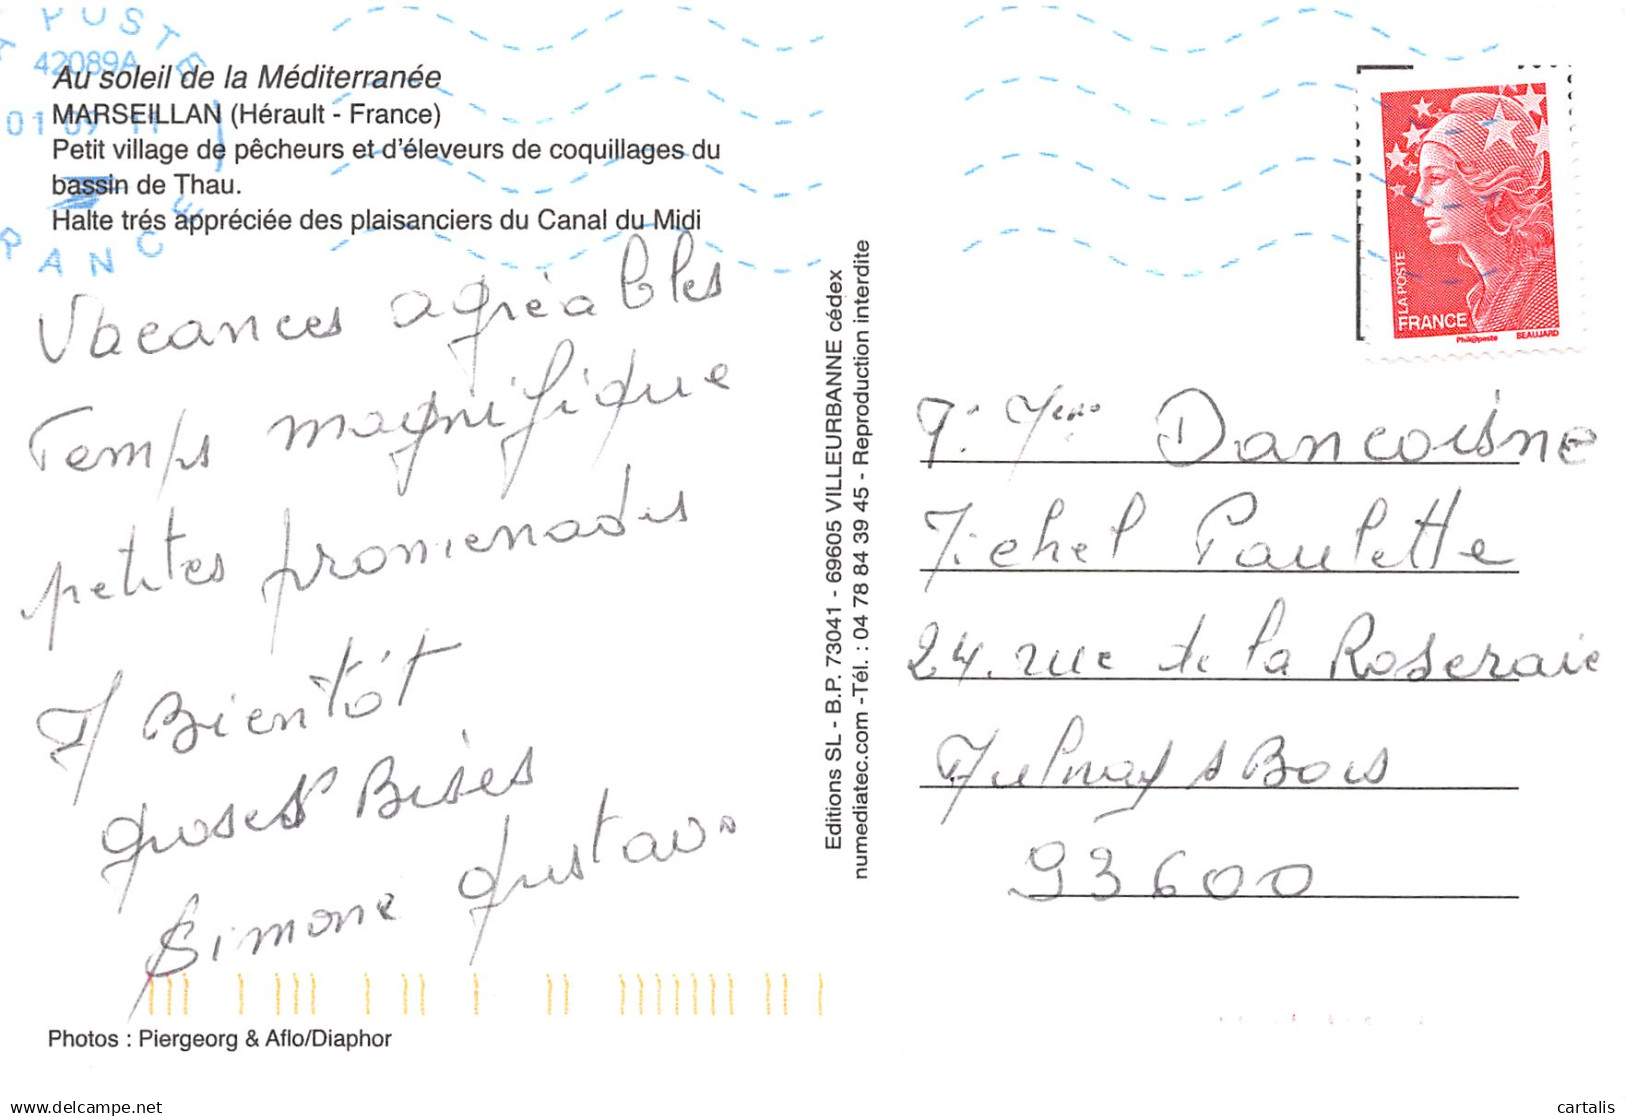 LA POSTE
42089A
01 09 11
FRANCE
Au soleil de la Méditerranée
MARSEILLAN (Hérault - France)
Petit village de pêcheurs et d'éleveurs de coquillages du
bassin de Thau.
Halte trés appréciée des plaisanciers du Canal du Midi
Vacances agréables
Temps magnifique
petites promenades
A Bientôt
groses Bises
Simone Gustave
Photos : Piergeorg & Aflo/Diaphor
Editions SL - B.P. 73041 - 69605 VILLEURBANNE cédex
numediatec.com -Tél. : 04 78 84 39 45 - Reproduction interdite
LA POSTE
FRANCE
Phil@poste BEAUJARD
Dancoisne
Michel Paulette
24. rue de la Roseraie
Aulnay s Bois
93600
cartalis